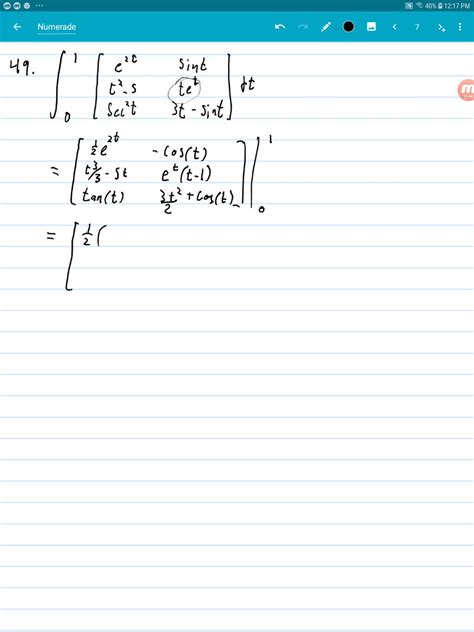 40% 12:17 PM
Numerade 7
49. ∫₀¹ [ e^{2t} sint
t²-5 te^t
sec²t 3t - sint ] dt
= [ ½e^{2t} -cos(t)
t³/3 - 5t e^t(t-1)
tan(t) 3t²/2 + cos(t) ] |₀¹
= [ ½(